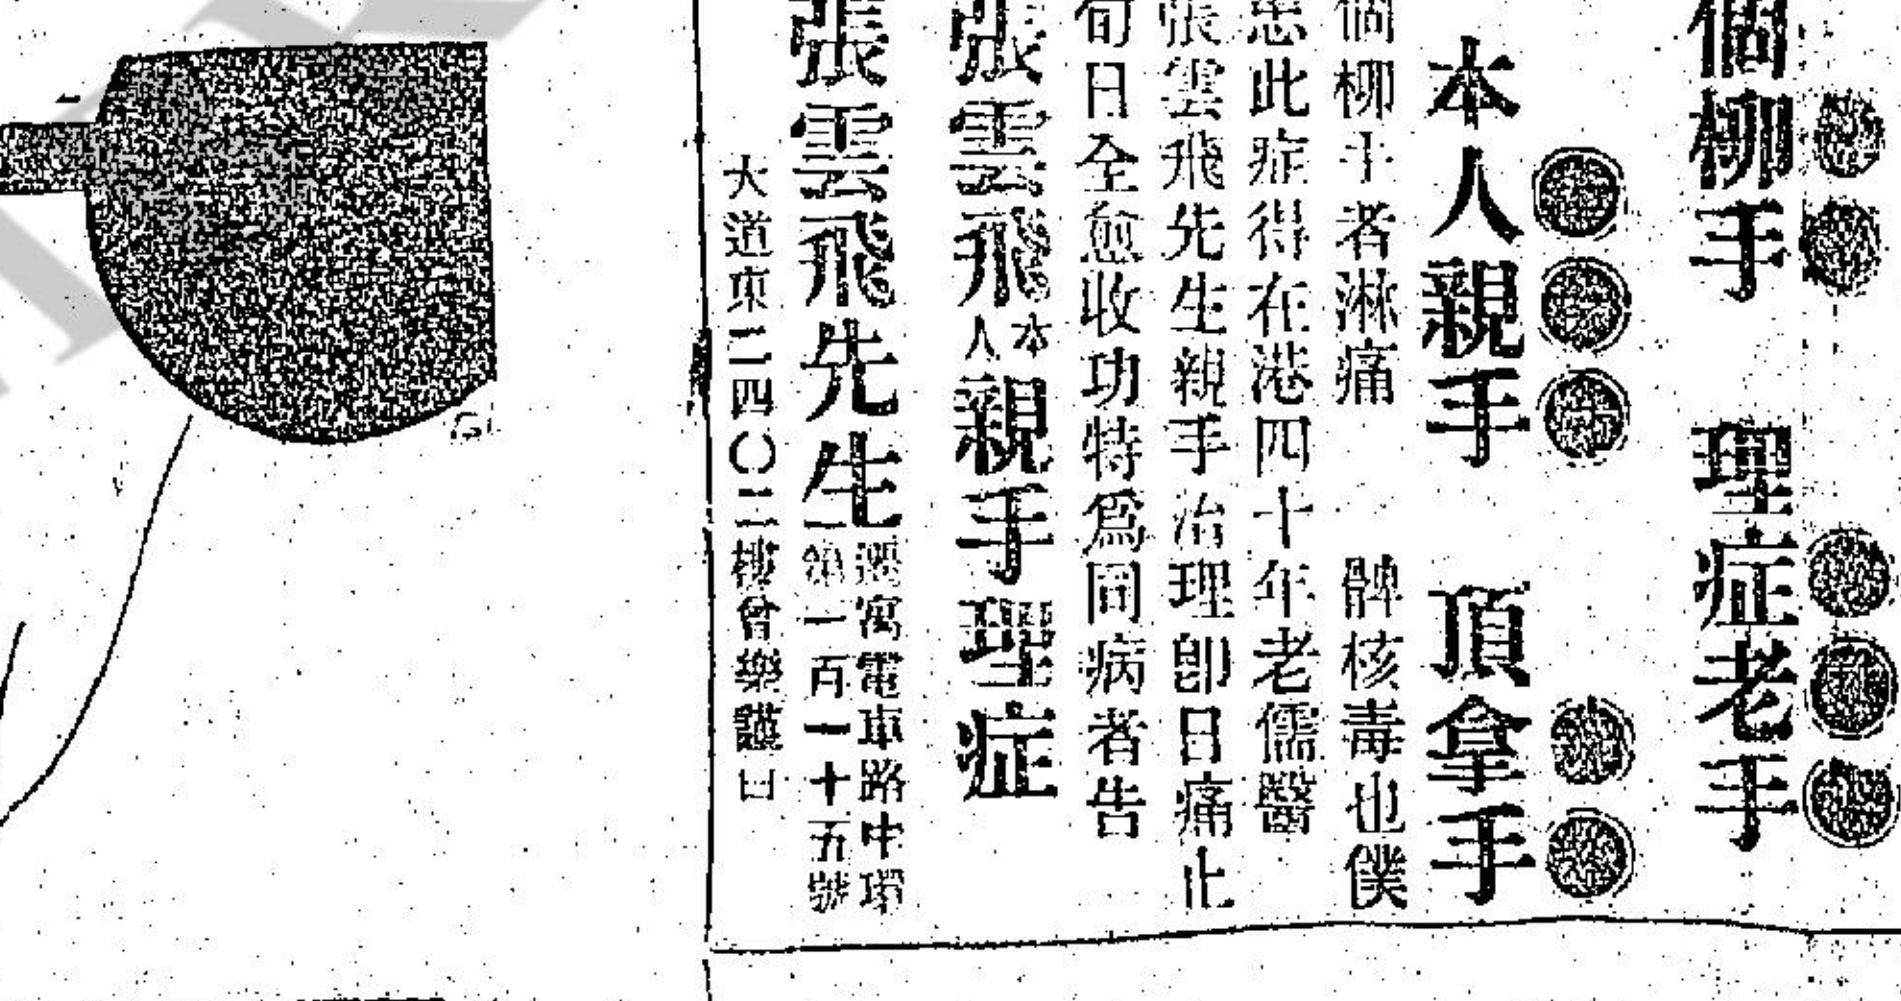 個柳手　理症老手
本人親手　頂拿手
個柳手者淋痛　髀核毒也僕
患此症得在港四十年老儒醫
張雲飛先生親手治理卽日痛止
旬日全愈收功特爲同病者告
張雲飛本人親手理症
張雲飛先生
寓電車路中環
第一百一十五號
大道東二四〇二樓曾樂護